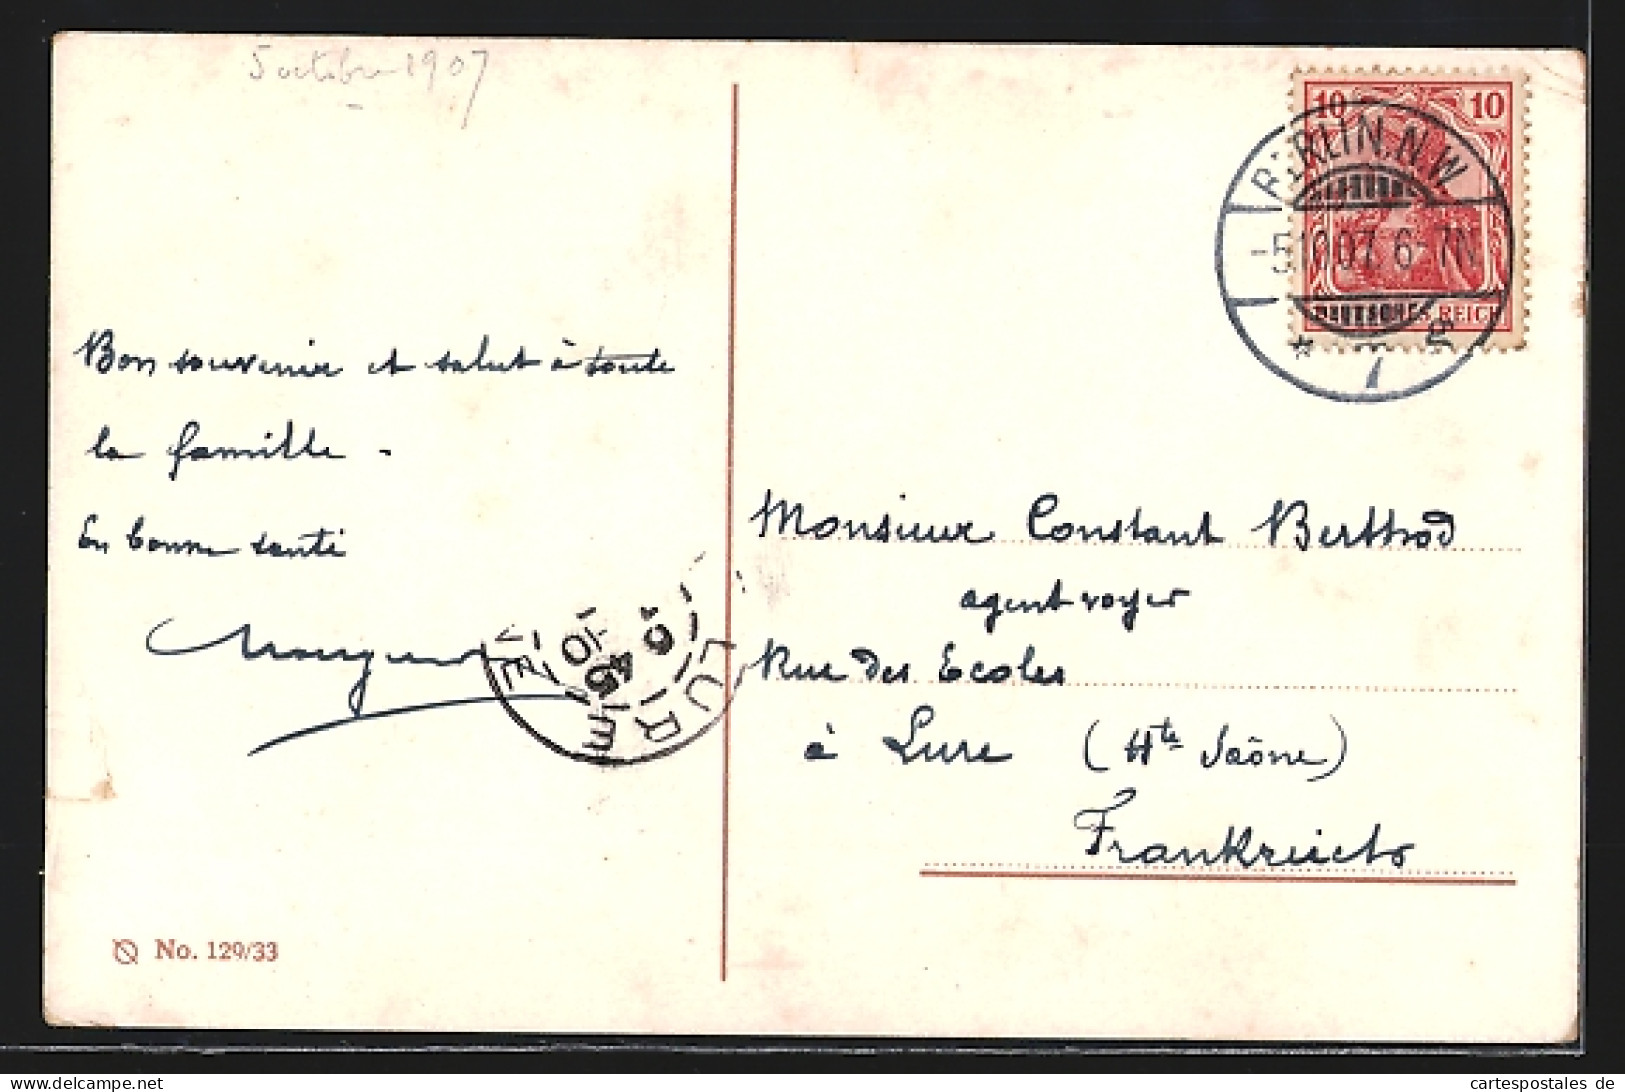 5 octobre 1907
10 10
BERLIN.N.W.
-5.10.07. 6-7N.
DEUTSCHES REICH
* 7
Bon souvenir et salut à toute
la famille -
En bonne santé
LURE
Monsieur Constant Berthod
agent voyer
Rue des Ecoles
à Lure (Hte Saône)
Frankreich
No. 129/33
cartespostales de